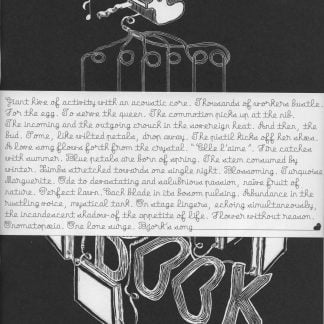 Giant hive of activity with an acoustic core. Thousands of workers bustle.
For the egg. To serve the queen. The commotion picks up at the nib.
The incoming and the outgoing crouch in the sovereign heat. And then, the
bud. Some, like wilted petals, drop away. The pistil kicks off her shoes.
A love song flows forth from the crystal. "Elle l'aime". Fire catches
with summer. Blue petals are born of spring. The stem consumed by
winter. Limbs stretched towards one single night. Blossoming. Turquoise
Marguerite. Ode to devastating and salubrious passion, naive fruit of
nature. Perfect lawn. Each blade in its bosom pulsing. Abundance in the
rustling voice, mystical tank. On stage lingers, echoing simultaneously,
the incandescent shadow of the appetite of life. Flower without reason.
Onomatopæia. One lone surge. Bjork's song
BOOK